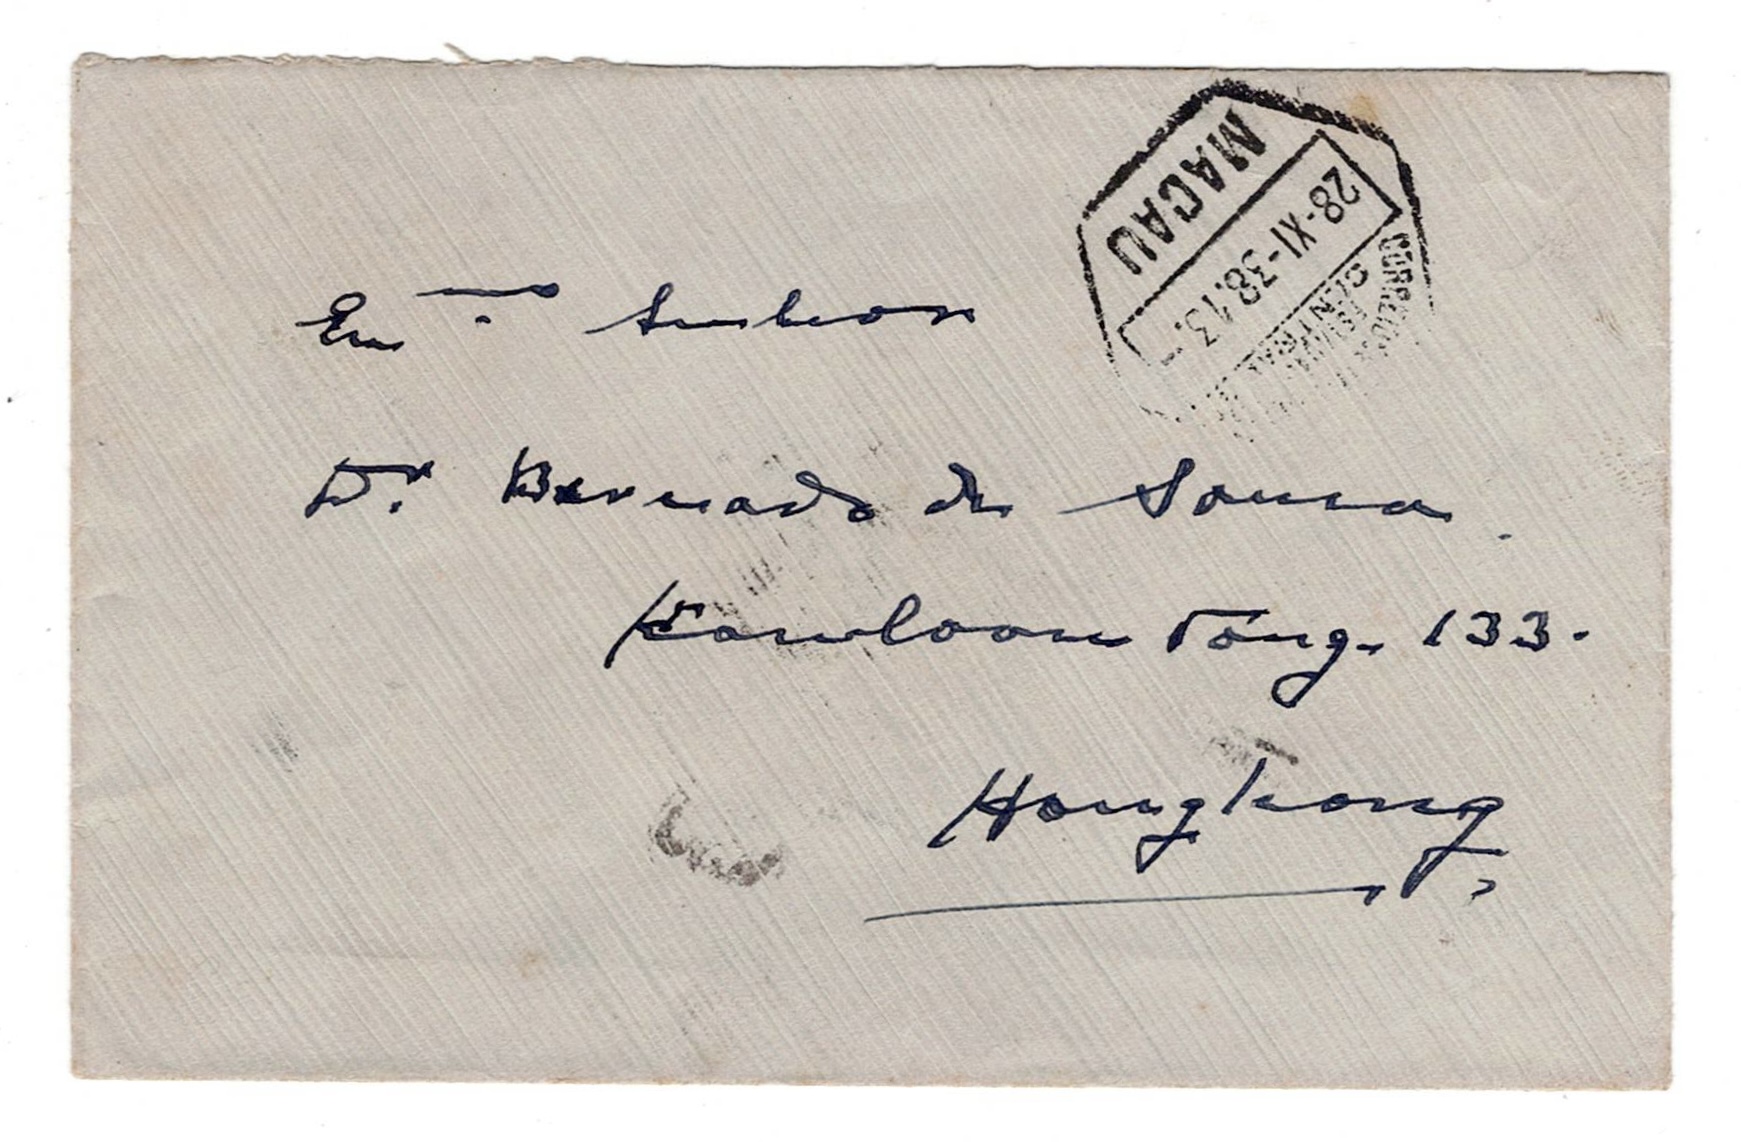 MACAU
28-XI-38.13.
CENTRAL
Emo Senhor
Dr. Bernado de Sousa.
Kowloon Tong. 133.
Hongkong